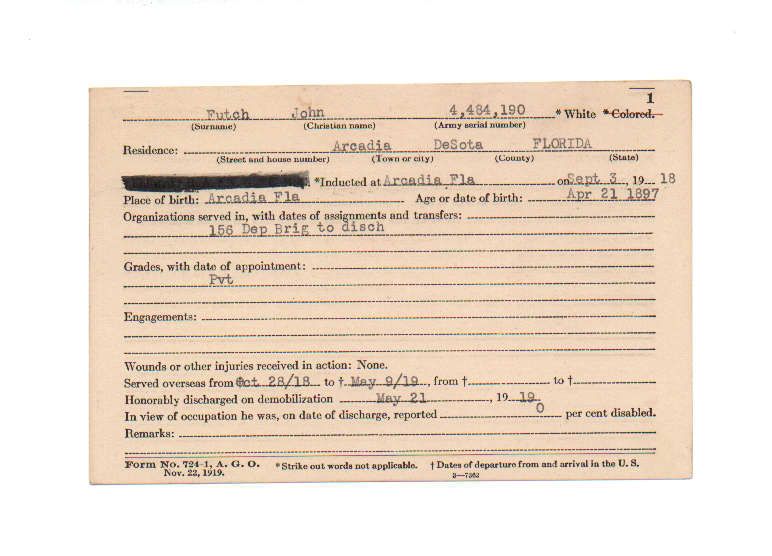 1
Futch John 4,484,190 * White * Colored.
(Surname) (Christian name) (Army serial number)
Residence: Arcadia DeSota FLORIDA
(Street and house number) (Town or city) (County) (State)
*Inducted at Arcadia Fla on Sept 3, 19 18
Place of birth: Arcadia Fla Age or date of birth: Apr 21 1897
Organizations served in, with dates of assignments and transfers:
156 Dep Brig to disch
Grades, with date of appointment:
Pvt
Engagements:
Wounds or other injuries received in action: None.
Served overseas from Oct 28/18 to † May 9/19, from † to †
Honorably discharged on demobilization May 21, 19 19
In view of occupation he was, on date of discharge, reported 0 per cent disabled.
Remarks:
Form No. 724-1, A. G. O. * Strike out words not applicable. † Dates of departure from and arrival in the U. S.
Nov. 22, 1919. 3—7302